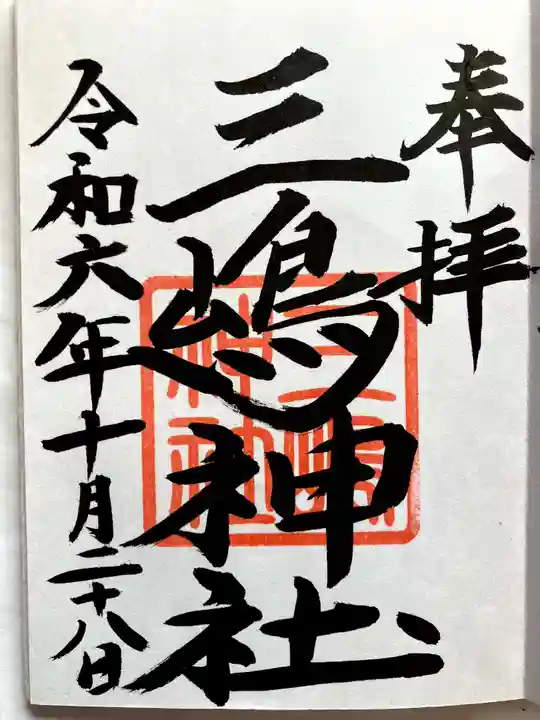 奉拝
三嶋神社
三嶋
神社
令和六年十月二十八日